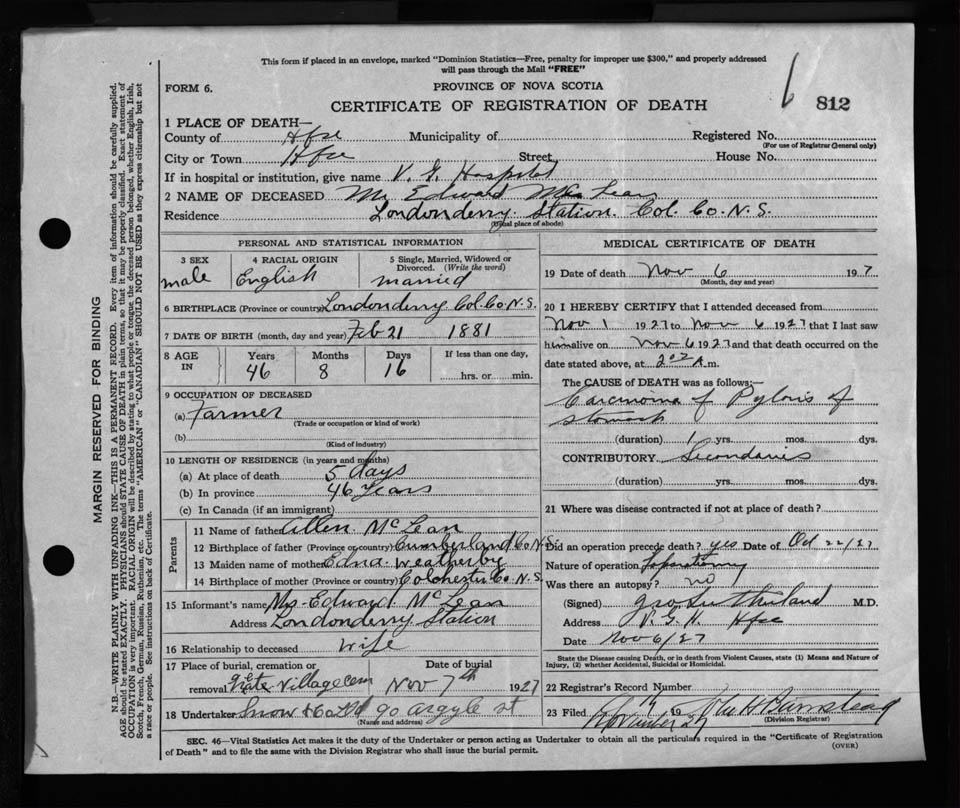 This form if placed in an envelope, marked "Dominion Statistics—Free, penalty for improper use $300," and properly addressed
will pass through the Mail "FREE"
FORM 6.
PROVINCE OF NOVA SCOTIA
6 812
CERTIFICATE OF REGISTRATION OF DEATH
1 PLACE OF DEATH—
County of Hfx Municipality of Registered No.
(For use of Registrar General only)
City or Town Hfx Street House No.
If in hospital or institution, give name V. G. Hospital
2 NAME OF DECEASED Mr Edward McLean
Residence Londonderry Station. Col. Co. N. S.
(Usual place of abode)
PERSONAL AND STATISTICAL INFORMATION
3 SEX 4 RACIAL ORIGIN 5 Single, Married, Widowed or
Divorced. (Write the word)
male English married
6 BIRTHPLACE (Province or country) Londonderry Col. Co. N. S.
7 DATE OF BIRTH (month, day and year) Feb 21 1881
8 AGE IN Years Months Days If less than one day,
46 8 16 hrs. or min.
9 OCCUPATION OF DECEASED
(a) Farmer
(Trade or occupation or kind of work)
(b)
(Kind of industry)
10 LENGTH OF RESIDENCE (in years and months)
(a) At place of death 5 days
(b) In province 46 Years
(c) In Canada (if an immigrant)
Parents
11 Name of father Allen McLean
12 Birthplace of father (Province or country) Cumberland Co N. S.
13 Maiden name of mother Edna Weatherby
14 Birthplace of mother (Province or country) Colchester Co. N. S.
15 Informant's name Mrs Edward McLean
Address Londonderry Station
16 Relationship to deceased Wife
17 Place of burial, cremation or Date of burial
removal Village cem Nov 7th 1927
18 Undertaker Snow & Co Ltd 90 Argyle st
MEDICAL CERTIFICATE OF DEATH
19 Date of death Nov 6 192 7
(Month, day and year)
20 I HEREBY CERTIFY that I attended deceased from
Nov 1 1927 to Nov 6 1927 that I last saw
him alive on Nov 6 1927 and that death occurred on the
date stated above, at 2 A m.
The CAUSE OF DEATH was as follows:—
Carcinoma of Pyloris of
Stomach
(duration) 1 yrs. mos. dys.
CONTRIBUTORY Secondaries
(duration) yrs. mos. dys.
21 Where was disease contracted if not at place of death?
Did an operation precede death? yes Date of Oct 22/27
Nature of operation laparotomy
Was there an autopsy? no
(Signed) Geo Sutherland M.D.
Address V. G. H. Hfx
Date Nov 6/27
State the Disease causing Death, or in death from Violent Causes, state (1) Means and Nature of
Injury, (2) whether Accidental, Suicidal or Homicidal.
22 Registrar's Record Number
23 Filed November 27
(Division Registrar)
SEC. 46—Vital Statistics Act makes it the duty of the Undertaker or person acting as Undertaker to obtain all the particulars required in the "Certificate of Registration
of Death" and to file the same with the Division Registrar who shall issue the burial permit.
(OVER)
MARGIN RESERVED FOR BINDING
N.B.—WRITE PLAINLY WITH UNFADING INK—THIS IS A PERMANENT RECORD. Every item of information should be carefully supplied.
AGE should be stated EXACTLY. PHYSICIANS should STATE CAUSE OF DEATH in plain terms, so that it may be properly classified. Exact statement of
OCCUPATION is very important. RACIAL ORIGIN will be described by stating to what people or tongue the deceased person belonged, whether English, Irish,
Scotch, French, German, Russian, Ruthenian, etc. The terms "AMERICAN" or "CANADIAN" SHOULD NOT BE USED as they express citizenship but not
a race or people. See instructions on back of Certificate.